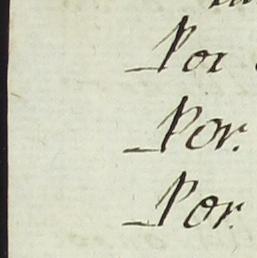 Por
Por.
Por.